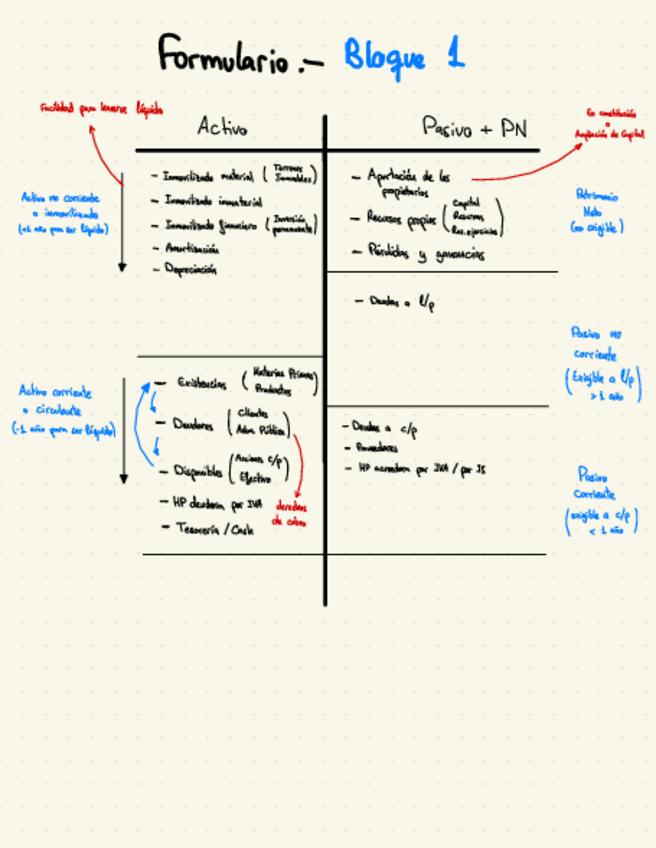 Formulario.- Bloque 1
Facilidad para hacerse líquido
En constitución
o
Ampliación de Capital
Activo
Pasivo + PN
Activo no corriente
o inmovilizado
(+1 año para ser líquido)
- Inmovilizado material (Terrenos
Inmuebles)
- Inmovilizado inmaterial
- Inmovilizado financiero (Inversión
permanente)
- Amortización
- Depreciación
- Aportación de los
propietarios
- Recursos propios (Capital
Reservas
Res. ejercicios)
- Pérdidas y ganancias
Patrimonio
Neto
(no exigible)
- Deudas a l/p
Pasivo no
corriente
(Exigible a l/p)
> 1 año
Activo corriente
o circulante
(-1 año para ser líquido)
- Existencias (Materias Primas
Productos)
- Deudores (Clientes
Adm. Pública)
- Disponibles (Acciones c/p
Efectivo)
- HP deudora por IVA
- Tesorería / Cash
derechos
de cobro
- Deudas a c/p
- Proveedores
- HP acreedora por IVA / por IS
Pasivo
corriente
(exigible a c/p)
< 1 año